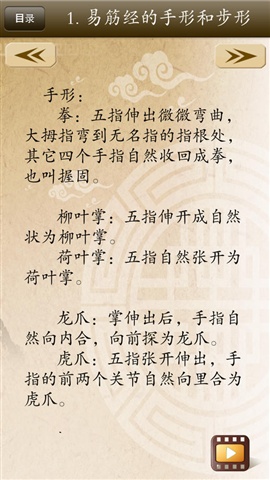 目录
1. 易筋经的手形和步形
手形：
拳：五指伸出微微弯曲，
大拇指弯到无名指的指根处，
其它四个手指自然收回成拳，
也叫握固。
柳叶掌：五指伸开成自然
状为柳叶掌。
荷叶掌：五指自然张开为
荷叶掌。
龙爪：掌伸出后，手指自
然向内合，向前探为龙爪。
虎爪：五指张开伸出，手
指的前两个关节自然向里合为
虎爪。